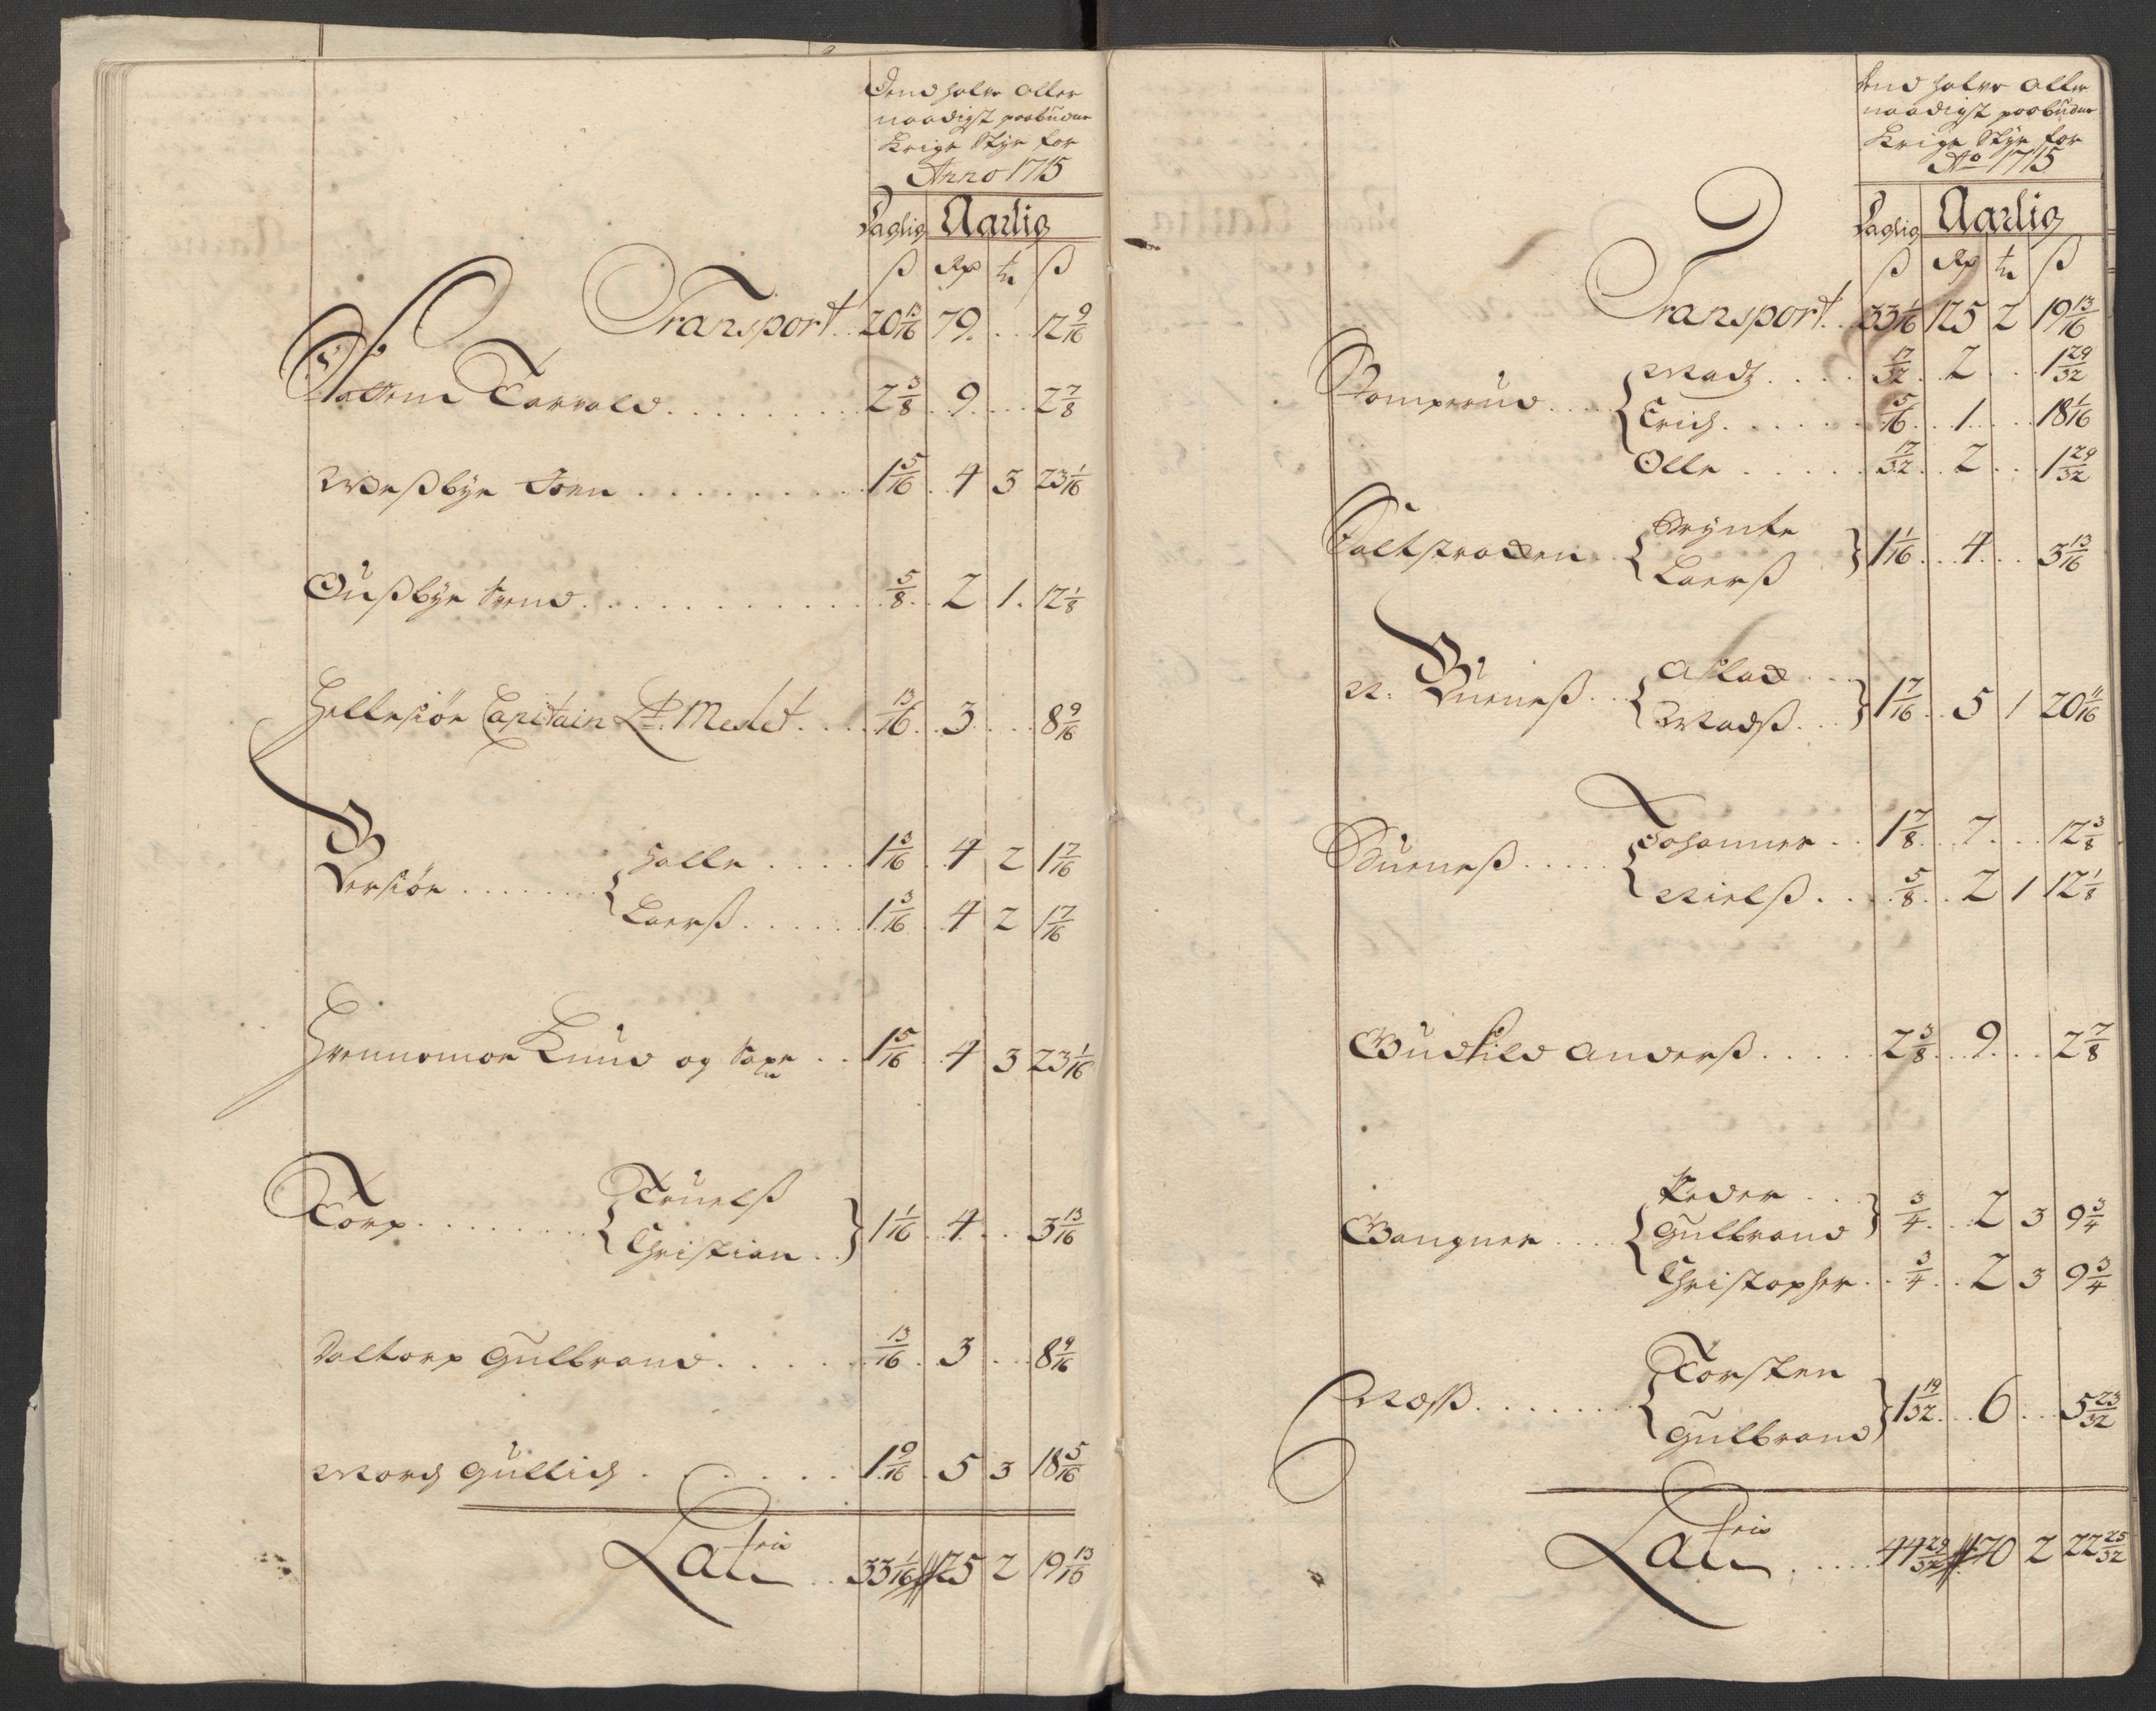 Dend halve aller
naadigst paabudne
Krigs Styr for
Anno 1715
Daglig Aarlig
ß Rd ort ß
Transport .. 20 13/16 79 . . . 12 9/16
Torvald . . . . . 2 3/8 . 9 . . . 2 7/8
Westbye Joen . . . . . 1 5/16 . 4 3 23 1/16
Oustbye Svend . . . . . 5/8 . 2 1 . 12 1/8
Hellesiøe Capitain Lt. Meslet . . . 13/16 . 3 . . . 8 9/16
Versiøe . . . . { Halle . . . . 1 3/16 . 4 2 1 7/16
Laerß . . . . . 1 3/16 . 4 2 1 7/16
Knud og . . 1 5/16 . 4 3 23 1/16
Torp . . . . . { Truelß
Christian . . } 1 1/16 . 4 . . 3 13/16
Daltorp Gulbrand . . . . . 13/16 . 3 . . . 8 9/16
Morch Gullich . . . . . 1 9/16 . 5 3 18 5/16
Latris .. 33 1/16 125 2 19 13/16
Dend halve aller
naadigst paabudne
Krigs Styr for
Ao 1715
Daglig Aarlig
ß Rd ort ß
Transport .. 33 1/16 125 2 19 13/16
Romperud . . . { Madz . . . . 17/32 . . 2 . . 1 29/32
Erich . . . . . 5/16 . . 1 . . . 18 1/16
Olle . . . . . 17/32 . . 2 . . . 1 29/32
{ Brynte
Laerß } 1 1/16 . . 4 . . 3 13/16
N: Buerneß . . { Aslach . . .
Madß . . } 1 7/16 . . 5 1 20 11/16
Buerneß . . . . { Johannes . . 1 7/8 . . 7 . . . 12 3/8
Nielß . . . 5/8 . . 2 1 12 1/8
Gudkild Anderß . . . . . 2 3/8 . . 9 . . . 2 7/8
Gangnes . . . { Peder . . .
Gulbrand } 3/4 . . 2 3 9 3/4
Christopher . . 3/4 . . 2 3 9 3/4
Moß . . . . . . { Torsten
Gulbrand } 1 19/32 . . 6 . . . 5 23/32
Latris . . . . 44 29/32 170 2 22 25/32